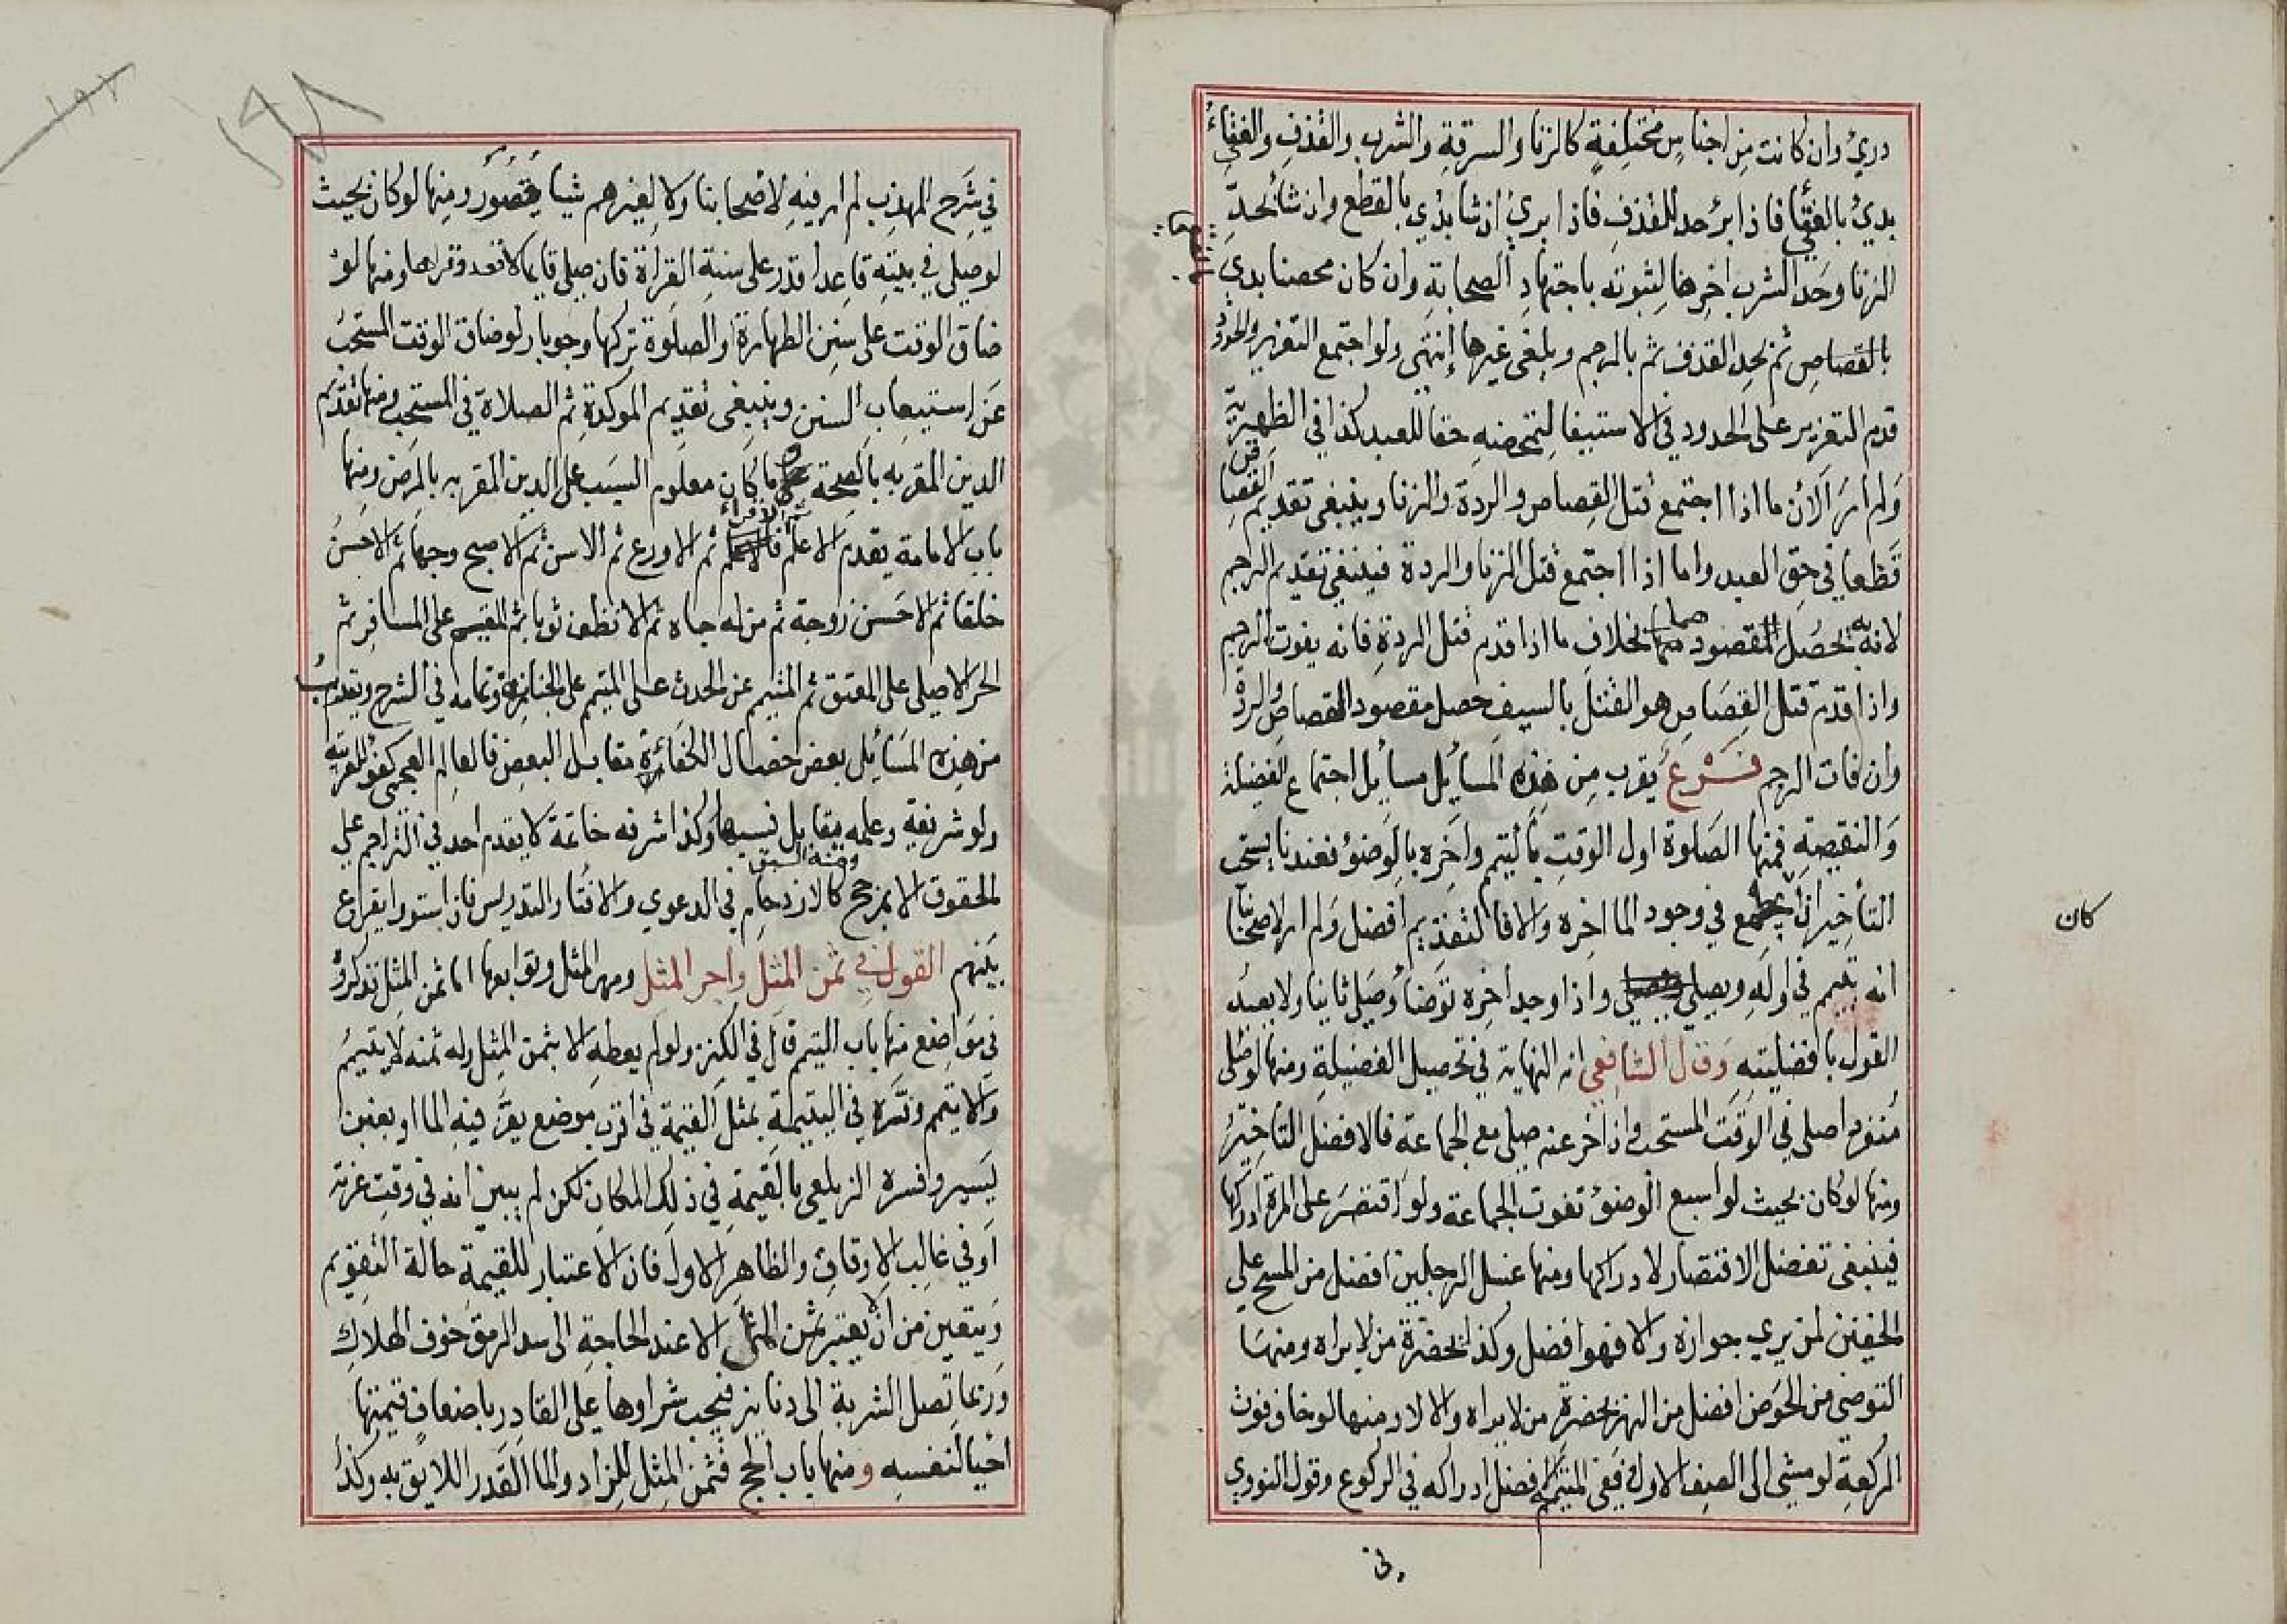 دري وان كانت من اجناس مختلفة كالزنا والسرقة والشرب والقذف والفقاء
بدئ بالفقاء فاذا برئ حد للقذف فاذا برئ ان شا بدي بالقطع وان شا بحد
الزنا وحد الشرب اخرها لثبوته باجتهاد الصحابة وان كان محصنا بدئ
بالقصاص ثم بحد القذف ثم بالرجم ويلغى غيرها إنتهى ولو اجتمع التعزير والحدود
قدم التعزير على الحدود في الاستيفا لتمحضه حقا للعبد كذا في الظهيرية
ولم ار الأن ما اذا اجتمع قتل القصاص والردة والزنا وينبغي تقديم القصاص
قطعا في حق العبد واما اذا اجتمع قتل الزنا والردة فينبغي تقديم الرجم
لانه به يحصل المقصود بخلاف ما اذا قدم قتل الردة فانه يفوت الرجم
واذا قدم قتل القصاص هو القتل بالسيف حصل مقصود القصاص والردة
وان فات الرجم فرع يقرب من هذه المسائل مسايل اجتماع الفضيلة
والنقيصة فمنها الصلوة اول الوقت بالتيمم واخره بالوضوء فعندنا يستحب
التأخير ان يطمع في وجود الما اخره والا فالتقديم افضل ولم ار لاصحابنا
كان
انه يتيمم في اوله ويصلي واذا وجد اخره توضأ وصلى ثانيا ولا يبعد
القول بافضليته وقال الشافعي انه النهاية في تحصيل الفضيلة ومنها لو صلى
منفردا صلى في الوقت المستحب واذا أخر عنه صلى مع الجماعة فالافضل التأخير
ومنها لو كان بحيث لو اسبغ الوضوء تفوت الجماعة ولو اقتصر على المرة ادركها
فينبغي تفضل الاقتصار لادراكها ومنها غسل الرجلين افضل من المسح على
الخفين لمن يرى جوازه والا فهو افضل وكذا بحضرة من لا يراه ومنها
التوضي من الحوض افضل من النهر بحضرة من لا يراه والا لا ومنها لو خاف فوت
الركعة لو مشى الى الصف الاول ففي اليتيمة الافضل ادراكه في الركوع وقول النووي
في
١٩٨
في شرح المهذب لم ار فيه لاصحابنا ولا لغيرهم شيئا قصور ومنها لو كان بحيث
لو صلى في بيته قاعدا قدر على سنة القراءة فان صلى قايما لا قعد وقراها ومنها لو
ضاق الوقت على سنن الطهارة او الصلوة تركها وجوبا ولو ضاق الوقت المستحب
عن استيعاب السنن وينبغي تقديم الموكدة ثم الصلاة في المستحب ومنها تقديم
الدين المقر به بالصحة وما كان معلوم السبب على الدين المقر به بالمرض ومنها
باب الامامة يقدم الاعلم ثم الاقراء ثم الاورع ثم الاسن ثم الاصبح وجها ثم الاحسن
خلقا ثم الاحسن زوجة ثم من له جاه ثم الانظف ثوبا ثم المقيم على المسافر ثم
الحر الاصلي على المعتق ثم المتيمم عن الحدث على المتيمم عن الجنابة وتمامه في الشرح ويقدم
من هذه المسائل بعض خصال الكفاءة مقابل البعض فالعالم العجمي كفو للعربية
ولو شريفة وعلمه يقابل نسبها وكذا شرفه خاتمة لا يقدم احد في التزاحم على
الحقوق الا بمرجح ومنه السبق كالازدحام في الدعوى والافتا والتدريس فان استووا يقرع
بينهم القول في ثمن المثل واجر المثل ومهر المثل وتوابعها اما ثمن المثل فذكروه
في مواضع منها باب التيمم قال في الكنز ولو لم يعطه الا بثمن المثل وله ثمنه لا يتيمم
والا يتيمم وفسره في اليتيمة بمثل القيمة في اقرب موضع يقر فيه الما او بغبن
يسير وفسره الزيلعي بالقيمة في ذلك المكان لكن لم يبين انه في وقت عزته
او في غالب الاوقات والظاهر الاول فان الاعتبار للقيمة حالة التقويم
ويتعين من ان لا يعتبر بثمن المثل الا عند الحاجة الى سد الرمق خوف الهلاك
وربما تصل الشربة الى دنانير فيجب شراوها على القادر باضعاف قيمتها
احيا لنفسه ومنها باب الحج فثمن المثل للزاد والما القدر اللايق به وكذا